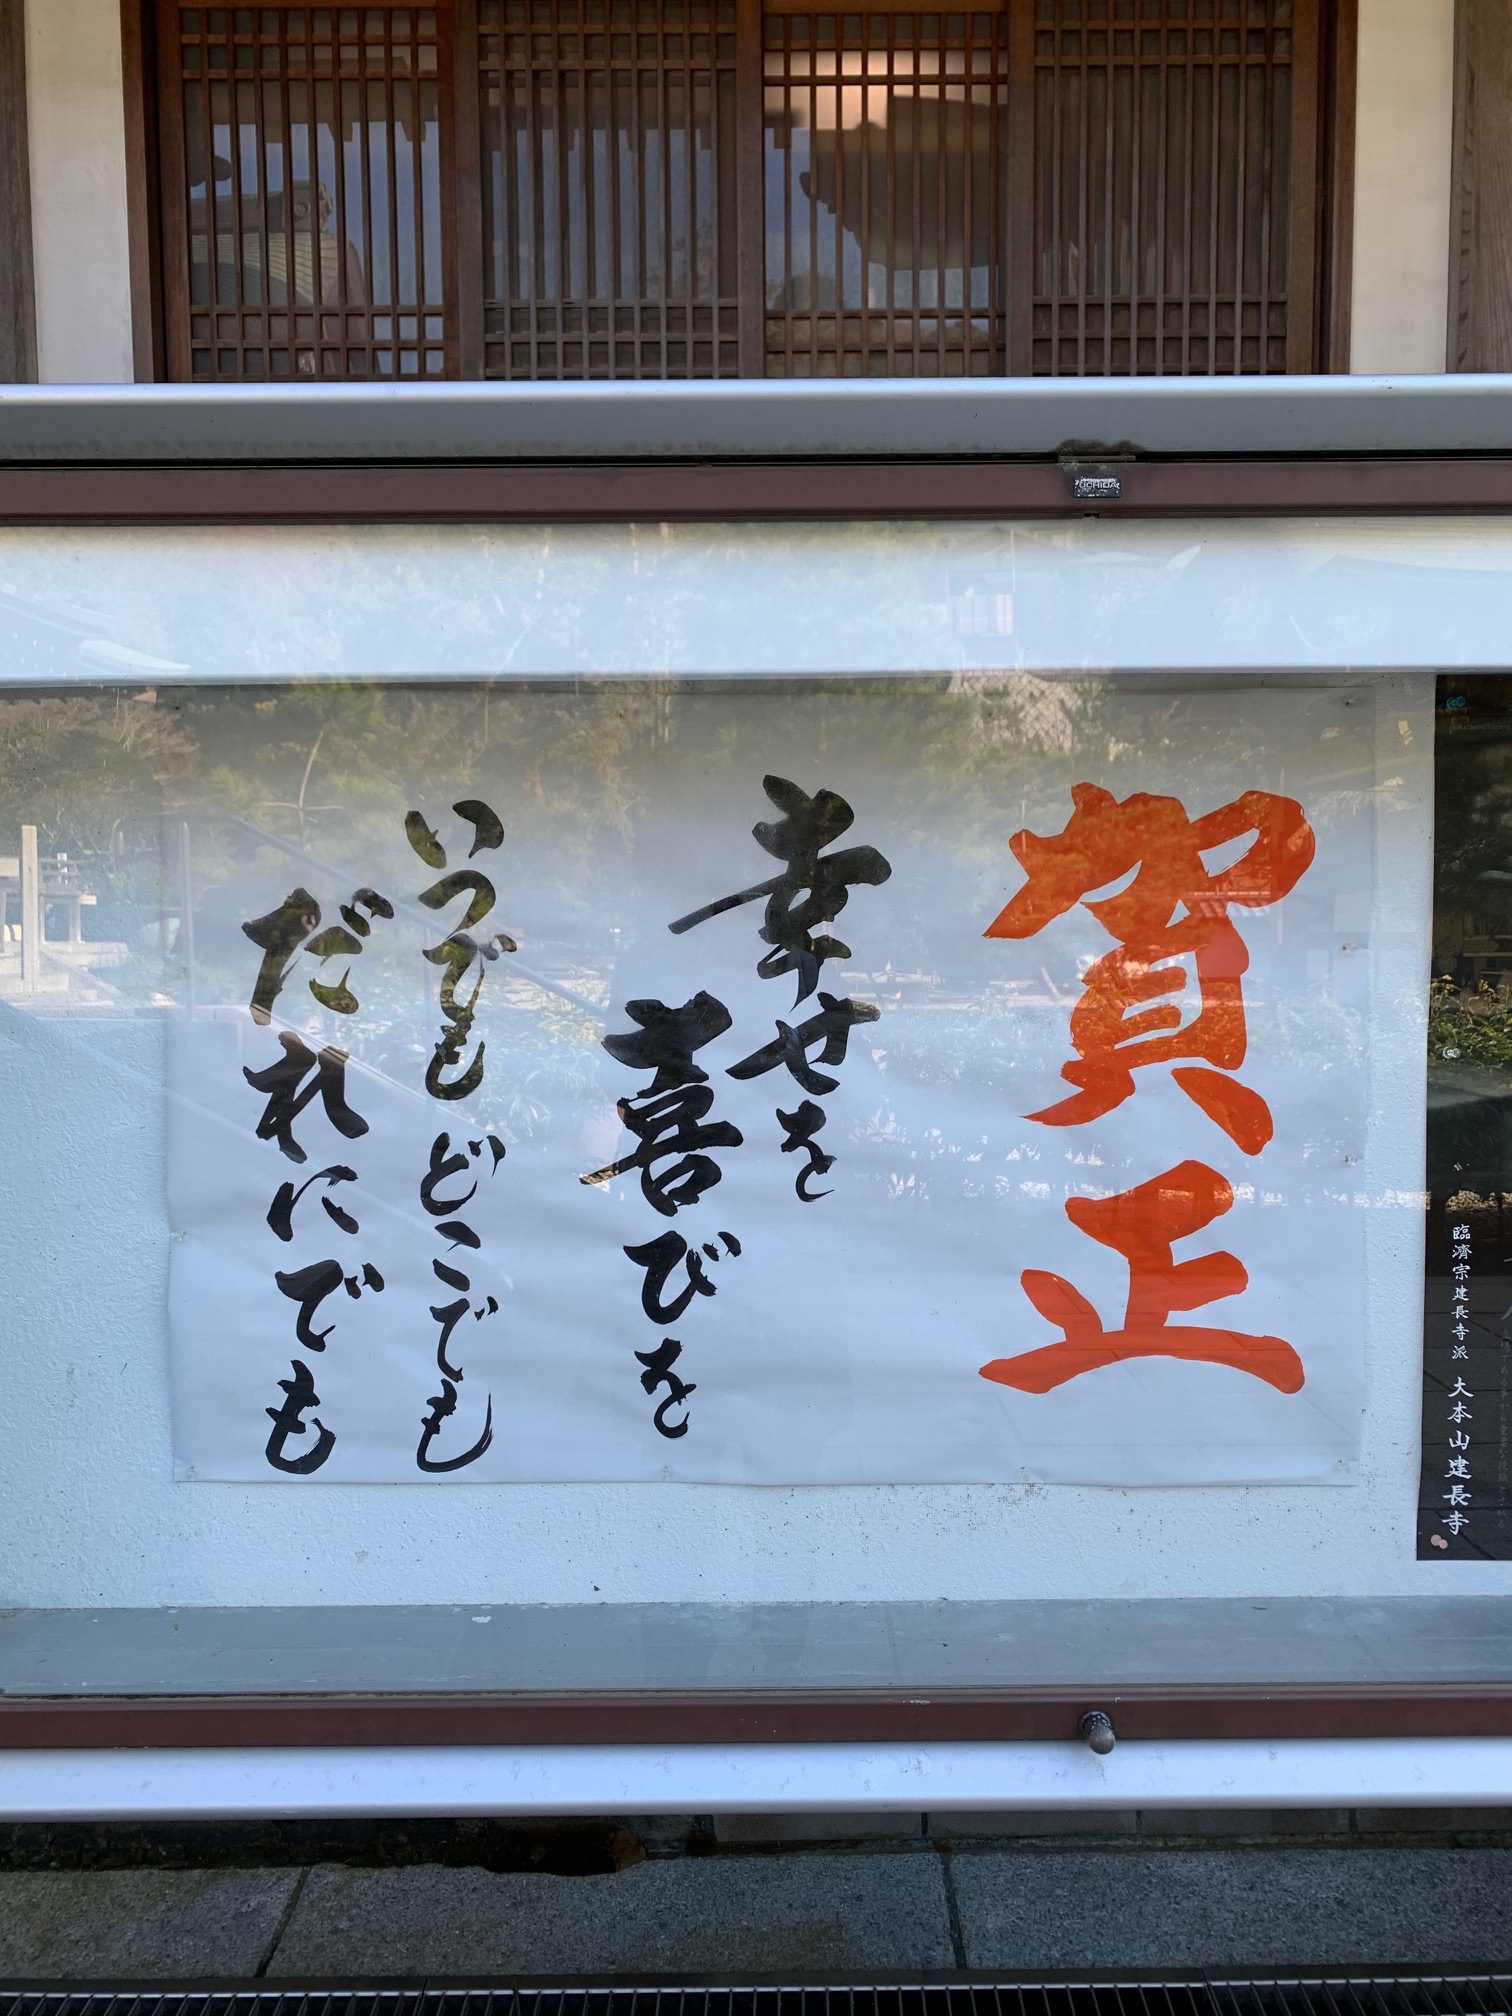 賀正
幸せを
喜びを
いつでもどこでも
だれにでも
臨濟宗建長寺派 大本山建長寺
UCHIDA